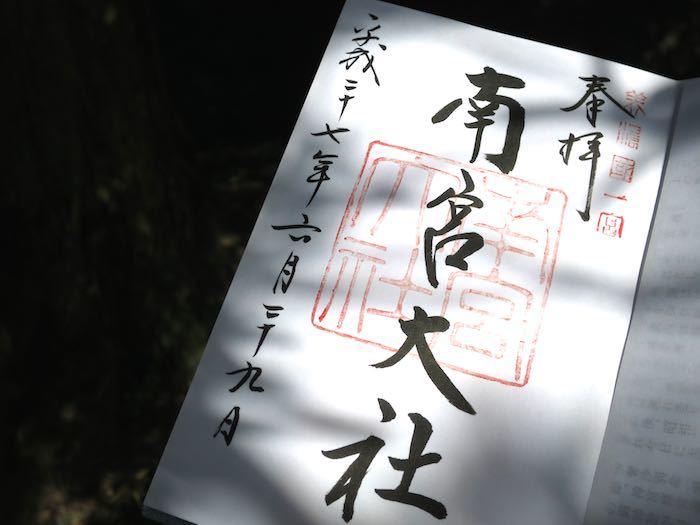 美濃国一宮
奉拝
南宮大社
南宮大社
平成二十七年六月二十九日